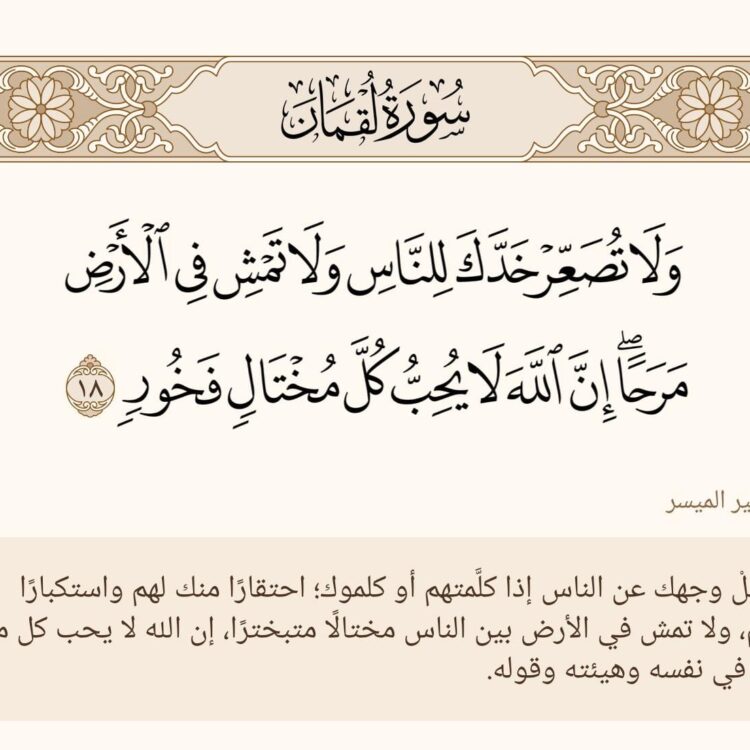 سُورَةُ لُقْمَان
وَلَا تُصَعِّرْ خَدَّكَ لِلنَّاسِ وَلَا تَمْشِ فِي ٱلْأَرْضِ
مَرَحًاۖ إِنَّ ٱللَّهَ لَا يُحِبُّ كُلَّ مُخْتَالٍ فَخُورٍ ١٨
الميسر
وجهك عن الناس إذا كلَّمتهم أو كلموك؛ احتقارًا منك لهم واستكبارًا
ولا تمش في الأرض بين الناس مختالًا متبخترًا، إن الله لا يحب كل
في نفسه وهيئته وقوله.